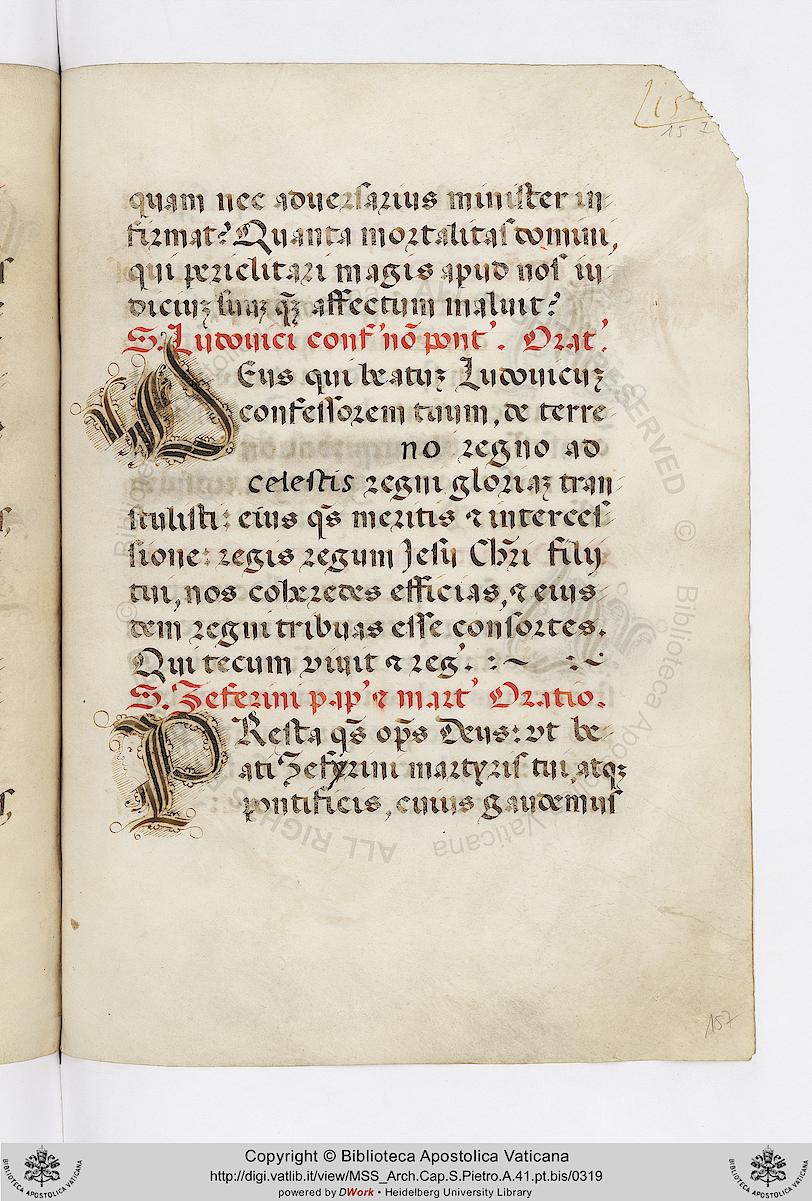 157
157
quam nec aduersarius minister in
firmat? Quanta mortalitas domini,
qui periclitari magis apud nos iu
diciuȝ suuȝ qȝ affectum maluit?
S. Ludouici conf' nõ pont'. Orat'.
DEus qui beatuȝ Ludouicuȝ
confessorem tuum, de terre
no regno ad
celestis regni gloriaȝ tran
stulisti: eius qs̃ meritis ⁊ interces
sione: regis regum Jesu Chr̃i filij
tui, nos coheredes efficias, ⁊ eius
dem regni tribuas esse consortes.
Qui tecum viuit ⁊ reg'. :~ :~
S. Zeferini pap' ⁊ mart' Oratio.
PResta qs̃ ops̃ Deus: vt be
ati Zefyrini martyris tui, atqȝ
pontificis, cuius gaudemus
157
Copyright © Biblioteca Apostolica Vaticana
http://digi.vatlib.it/view/MSS_Arch.Cap.S.Pietro.A.41.pt.bis/0319
powered by DWork • Heidelberg University Library